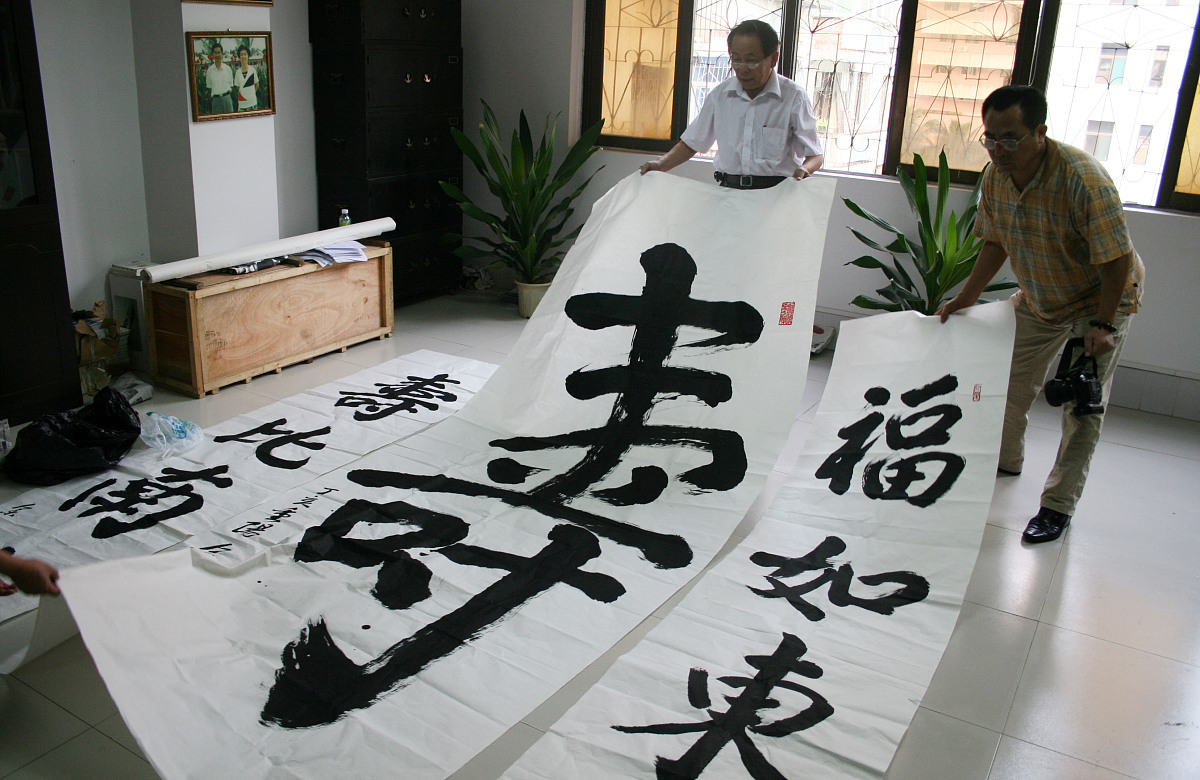 福如東
壽
壽比南